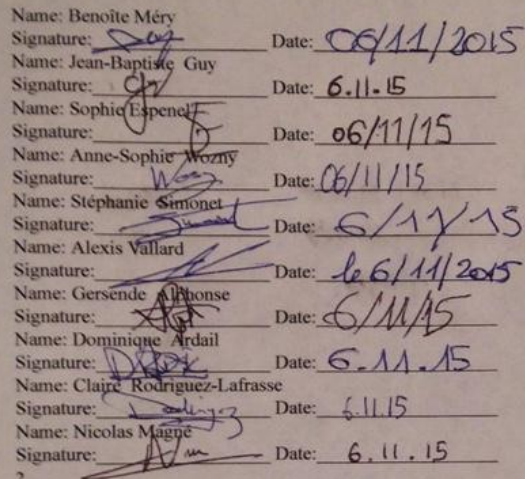 Name: Benoîte Méry
Signature: Date: 06/11/2015
Name: Jean-Baptiste Guy
Signature: Date: 6.11.15
Name: Sophie Espenel
Signature: Date: 06/11/15
Name: Anne-Sophie Wozny
Signature: Date: 06/11/15
Name: Stéphanie Simonet
Signature: Date: 6/11/15
Name: Alexis Vallard
Signature: Date: le 6/11/2015
Name: Gersende Alphonse
Signature: Date: 6/11/15
Name: Dominique Ardail
Signature: Date: 6.11.15
Name: Claire Rodriguez-Lafrasse
Signature: Date: 6.11.15
Name: Nicolas Magné
Signature: Date: 6.11.15